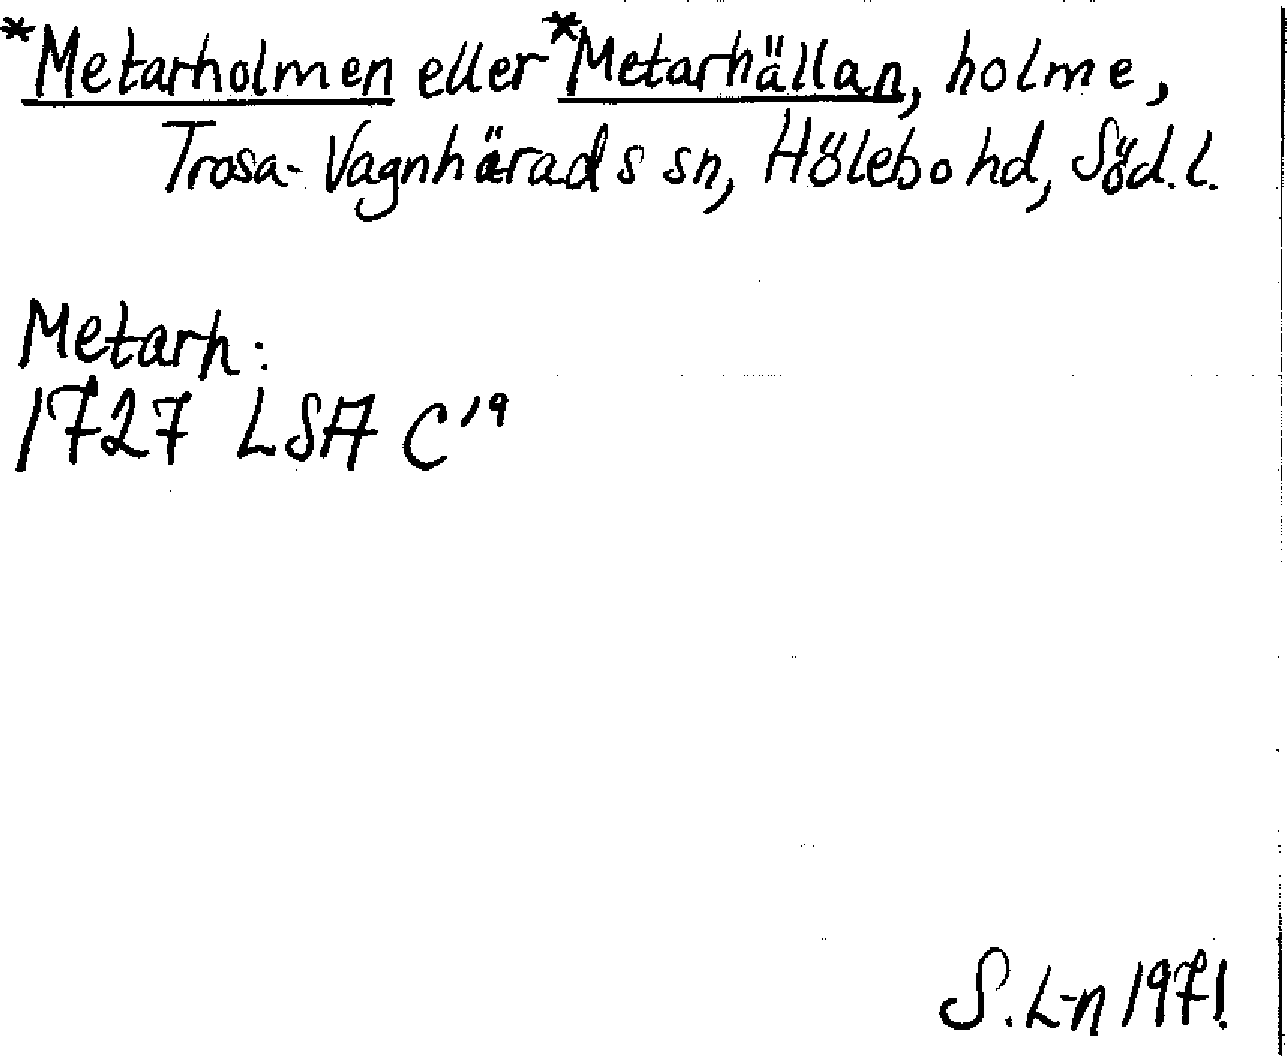 *Metarholmen eller *Metarhällan, holme,
Trosa-Vagnhärads sn, Hölebo hd, Söd. l.
Metarh:
1727 LSA C' 9
S. L-n 1971.